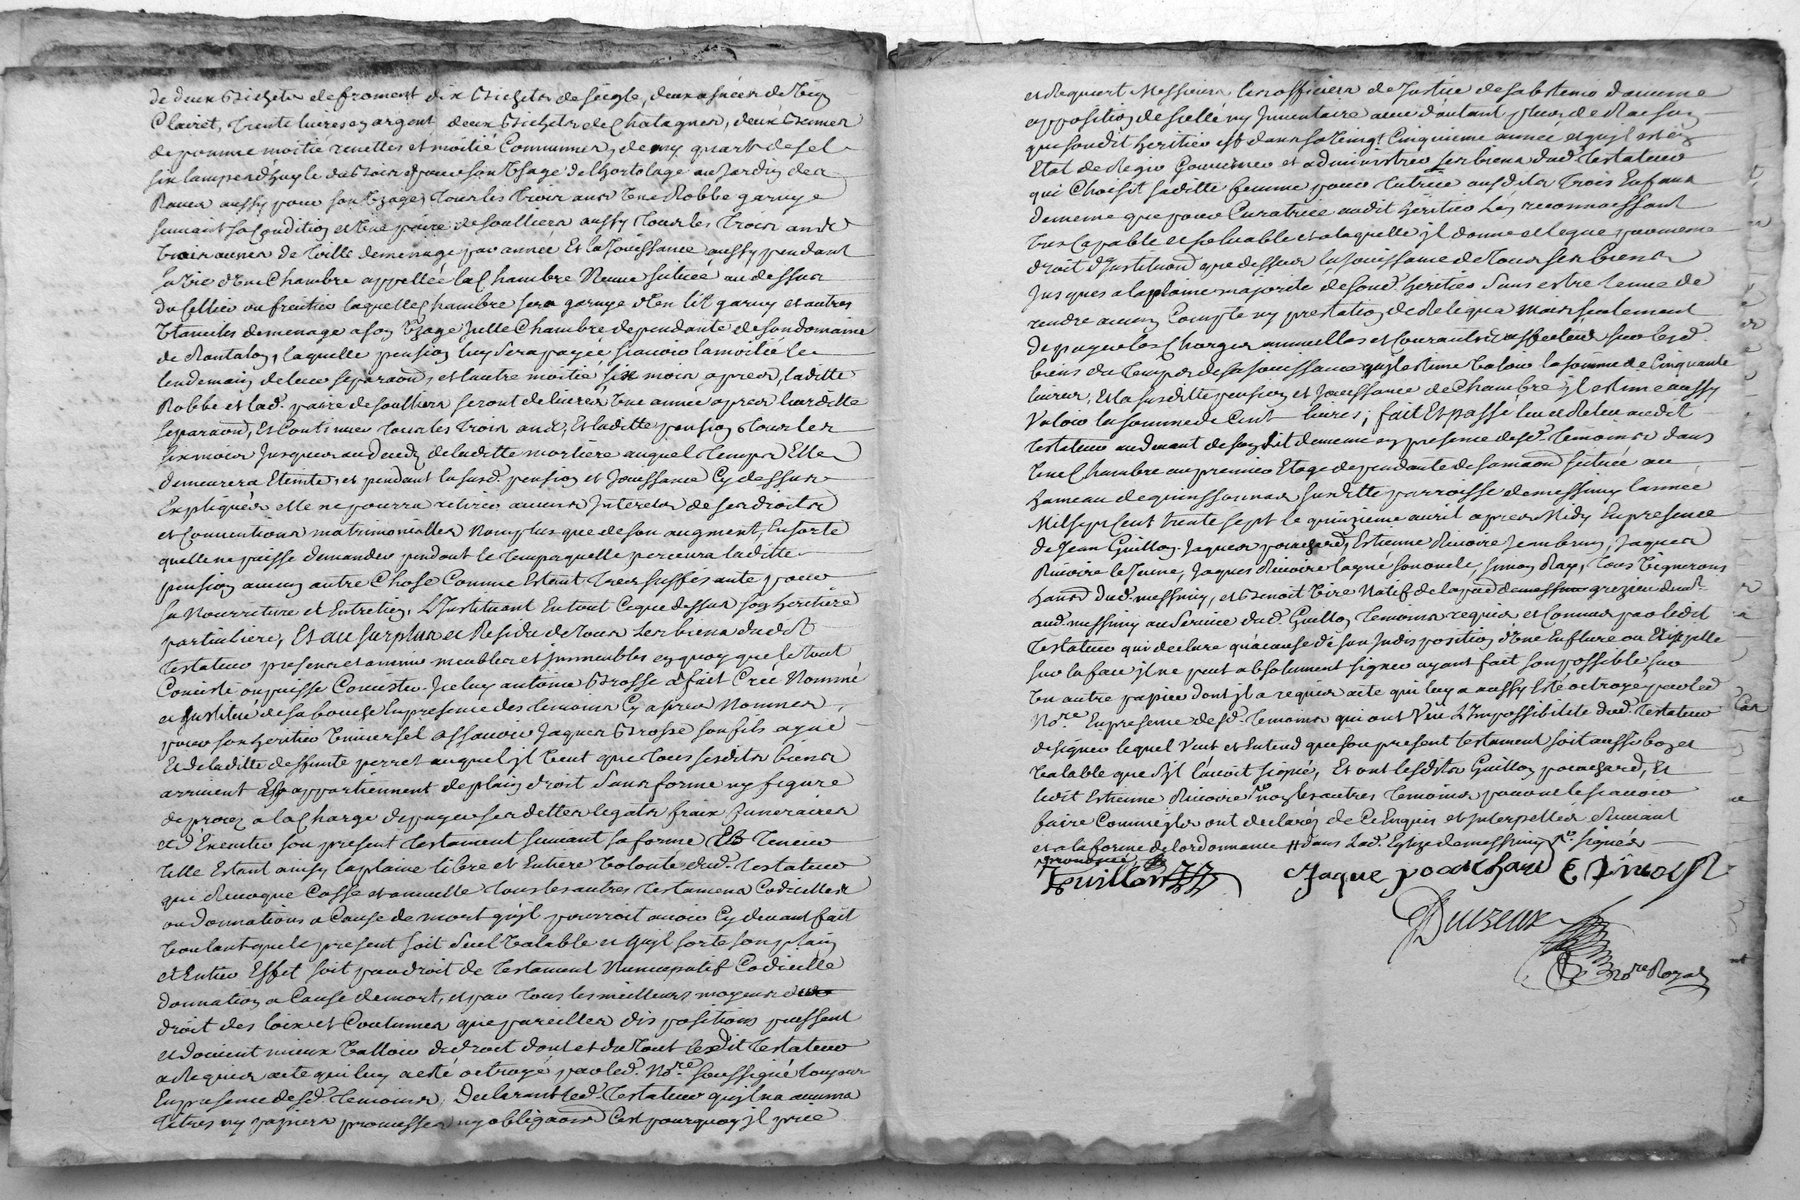 de deux Bichets de froment dix Bichets de seigle, deux asnées de vin
Clairet, trente livres en argent deux Bichets de Chatagnes, deux Bennes
de pomme moitié renettes et moitié Communes, demy quart de sel
six lampes d'huyle du Noir pour son Usage de l'hortolage au Jardin des
Raves aussy pour son Uzage, tous les trois ans Une Robbe garnye
suivant sa Condition et Une paire de soulliers aussy tous les trois ans &
trois aunes de toille de menage par année Et la Jouissance aussy pendant
sa vie d'Une Chambre appellée la Chambre Neuve scituée au dessus
du Cellier ou fruitier laquelle Chambre sera garnye d'Un lit garny et autres
Utancilles de menage a son Uzage Jcelle Chambre dependante de son domaine
de Rontalon, laquelle pension luy sera payée scavoir la moitié le
lendemain de leur separaon, et l'autre moitié six mois apres, laditte
Robbe et lad. paire de soulliers seront delivrés Une année apres laditte
separaon, Et Continuer tous les trois ans, Et laditte pension tous les
six mois Jusques au decedz de laditte mortiere auquel temps Elle
demeurera Eteinte, et pendant la susd. pension et Jouissance Cy dessus
Expliquées elle ne pourra retirer aucuns Jnterets de ses droits
et Conventions matrimonialles Non plus que de son augment, En sorte
quelle ne puisse demander pendant le temps quelle percevra laditte
pension aucun autre Chose Comme Estant tres suffisante pour
sa Nourriture et Entretien, L'Jnstituant En tout Ce que dessus son heritiere
particuliere, Et au surplus et Residu de tous les biens dudit
Testateur presens et avenir meubles et jmmeubles en quoy que le tout
Consiste ou puisse Consister Jceluy antoine Brosse a fait Créé Nommé
et Jnstitué de sa bouche En presence des temoins Cy apres Nommés
pour son heritier Universel assavoir Jaques Brosse son fils ayné
Et de laditte deffunte perret auquel jl veut que tous sesdits biens
arrivent Et appartiennent de plain droit Sans forme ny figure
de procez a la Charge de payer ses dettes legats fraix funeraires
et d'Executer son present testament suivant sa forme Et teneur
telle Estant ainsy la plaine libre et Entiere volonté dud. Testateur
qui Revoque Casse et annulle tous les autres testamens Codicilles
ou donnations a Cause de mort qu'jl pourroit avoir Cy devant fait
voulant que le present soit seul valable et qu'jl sorte son plain
et Entier Effet soit par droit de Testament Nuncupatif Codicille
donnation a Cause de mort, et par tous les meilleurs moyens
droit des loix et Coutumes que pareilles dispositions puissent
et doivent mieux valloir de droit dont et du tout ledit Testateur
a Requis acte qui luy a eté octroyé par led. Nore. soussigné toujours
En presence desd. temoins, Declarant led. Testateur qu'jl n'a aucuns
titres ny papiers promesses ny obligaons C'est pourquoy jl prie
et Requiert Messieurs les officiers de Justice de s'abstenir d'aucune
apposition de scellé ny Jnventaire avec d'autant plus de Raison
que son dit heritier est dans sa vingt Cinquieme année et qu'jl est en
Etat de Regir Gouverner et administrer ses biens dud. Testateur
qui Choisit saditte femme pour tutrice ausdits trois Enfans
de meme que pour Curatrice audit heritier les reconnoissant
tres Capable et solvable et a laquelle jl donne et legue par meme
droit d'Jnstituaon que dessus la Jouissance de tous ses biens
Jusques a la plaine majorité de sond. heritier Sans estre tenue de
rendre aucun Compte ny prestation de Reliqua Mais seulement
de payer les Charges annuelles et Courantes affectées sur lesd.
biens du temps de sa jouissance qu'jl estime valoir la somme de Cinquante
livres, Et la susditte pension et Jouissance de Chambre jl estime aussy
Valoir la somme de Cent livres; fait Et passé leu et Releu audit
Testateur audevant de son lit de meme en presence desd. temoins dans
Une Chambre au premier Etage dependante de sa maon scituée au
hameau de quinssonnas susditte parroisse de messimy l'année
Mil sept cent trente sept le quinzieme avril apres Midy En presence
de Jean Guillon Jaques pouchard, Estienne Rivoire Jean brun, Jaques
Rivoire le Jeune, Jaques Rivoire l'ayné son oncle, Simon Ray, tous vignerons
habis dud. messimy, et Benoit vire Natif de la par. de grezieu demt.
aud. messimy au service dud. Guillon temoins requis et Connus par ledit
Testateur qui declare qu'a cause de son Jndisposition d'Une Enflure ou Erisipelle
sur la face jl ne peut absolument signer ayant fait son possible sur
Un autre papier dont jl a requis acte qui luy a aussy Esté octroyé par led.
Nore. En presence desd. temoins qui ont Vüe L'Jmpossibilité dud. Testateur
de signer lequel Veut et Entend que son present testament soit aussi bon et
valable que s'jl l'avoit signé, Et ont lesdits Guillon pouchard, Et
ledit Estienne Rivoire signé non les autres temoins pour ne le scavoir
faire Comme jls ont declarez de Ce Enquis et jnterpellés suivant
et a la forme de l'ordonnance # dans lad. Eglise de messimy signés
Guillon Jaque pouchard E Rivoire
Duizeux
Nore Royal